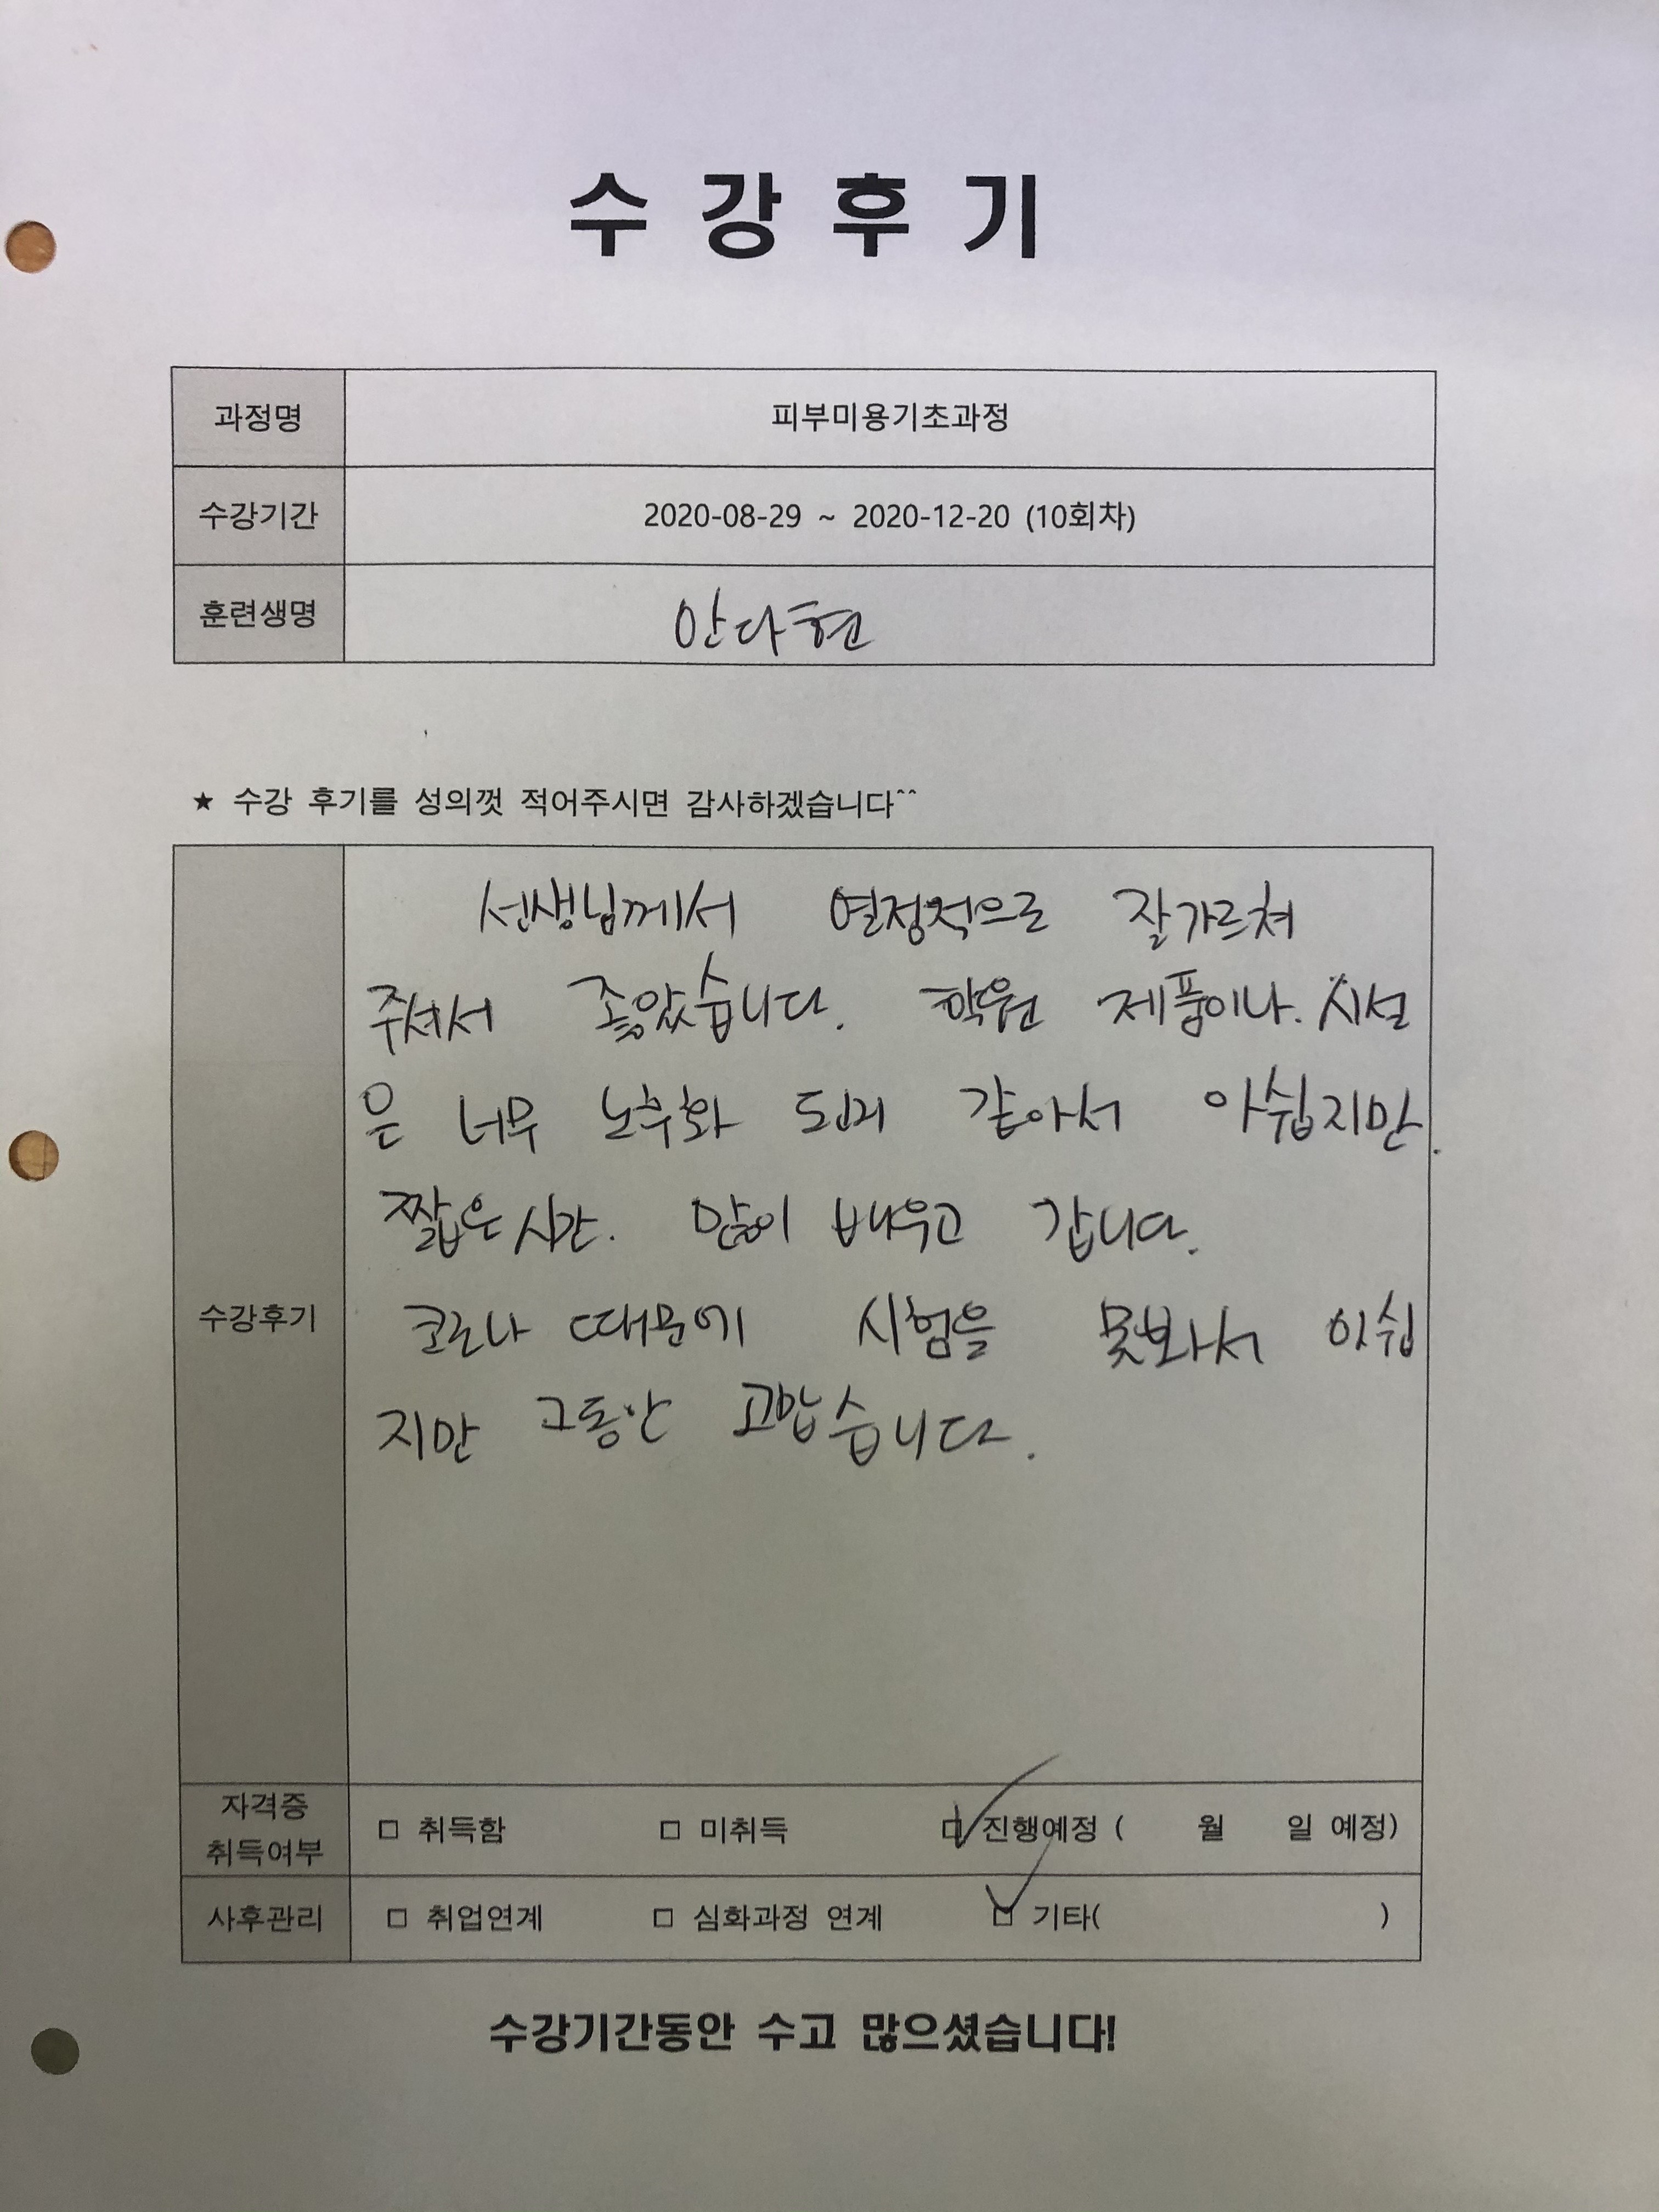 수강후기
과정명 피부미용기초과정
수강기간 2020-08-29 ~ 2020-12-20 (10회차)
훈련생명 안다현
★ 수강 후기를 성의껏 적어주시면 감사하겠습니다^^
선생님께서 열정적으로 잘가르쳐
주셔서 좋았습니다. 학원 제품이나. 시설
은 너무 노후화 된거 같아서 아쉽지만.
짧은 시간. 많이 배우고 갑니다.
수강후기 코로나 때문에 시험을 못봐서 아쉽
지만 그동안 고맙습니다.
자격증
취득여부 □ 취득함 □ 미취득 □ 진행예정 ( 월 일 예정)
사후관리 □ 취업연계 □ 심화과정 연계 □ 기타( )
수강기간동안 수고 많으셨습니다!